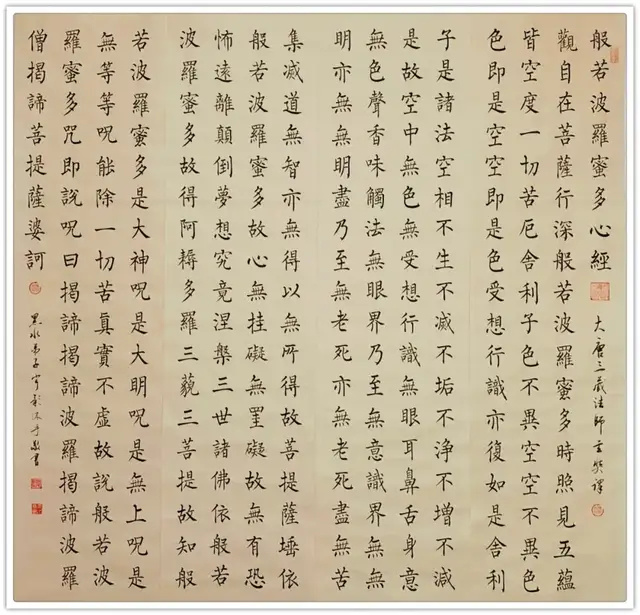 般若波羅蜜多心經
大唐三藏法師玄奘譯
觀自在菩薩行深般若波羅蜜多時照見五蘊
皆空度一切苦厄舍利子色不異空空不異色
色即是空空即是色受想行識亦復如是舍利
子是諸法空相不生不滅不垢不浄不增不減
是故空中無色無受想行識無眼耳鼻舌身意
無色聲香味觸法無眼界乃至無意識界無無
明亦無無明盡乃至無老死亦無老死盡無苦
集滅道無智亦無得以無所得故菩提薩埵依
般若波羅蜜多故心無挂礙無罣礙故無有恐
怖遠離顛倒夢想究竟涅槃三世諸佛依般若
波羅蜜多故得阿耨多羅三藐三菩提故知般
若波羅蜜多是大神呪是大明呪是無上呪是
無等等呪能除一切苦真實不虛故說般若波
羅蜜多咒即說呪曰揭諦揭諦波羅揭諦波羅
僧揭諦菩提薩婆訶
黑水弟子